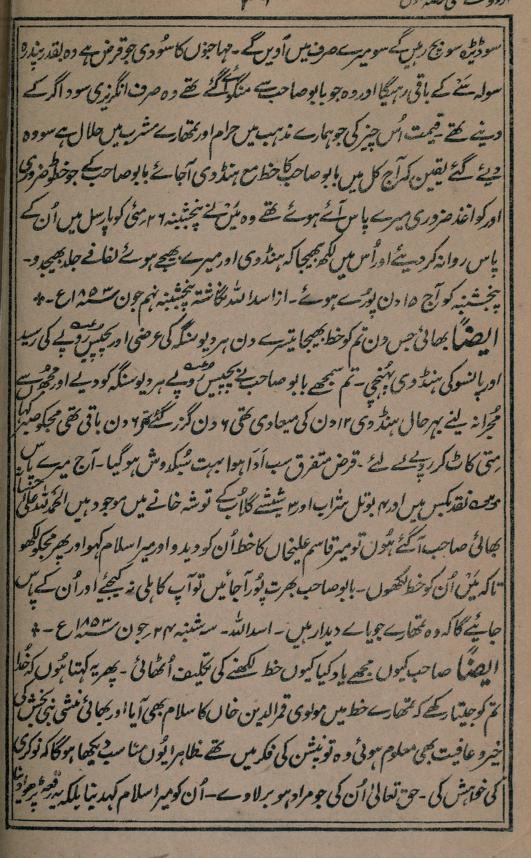 سو ڈیڑھ سو بچ رہیں گے سو میرے صرف میں آویں گے۔ مہاجنوں کا سودی جو قرض ہے وہ بقدر پندرہ
سولہ سے کے باقی رہیگا اور وہ جو بابو صاحب سے منگوائے گئے تھے وہ صرف انگریزی سوداگر کے
دینے تھے۔ قیمت اُس چیز کی جو ہمارے مذہب میں حرام اور تمھارے مشرب میں حلال ہے سو وہ
دیئے گئے یقین کہ آج کل میں بابو صاحب کا خط مع ہنڈوی آجائے بابو صاحب کے جو خطوط ضروری
اور کواغذ ضروری میرے پاس آئے ہوئے تھے وہ میں نے پنجشنبہ ۲۶ مئی کو پارسل میں اُن کے
پاس روانہ کر دیئے اور اُس میں لکھ بھیجا کہ ہنڈوی اور میرے بھیجے ہوئے لفافے جلد بھیجدو۔
پنجشنبہ کو آج ۱۵ دن پورے ہوئے۔ از اسد اللہ نگاشتہ پنجشنبہ نہم جون سنہ ۱۸۵۳ع۔
ایضاً بھائی جس دن تم کو خط بھیجا تیسرے دن ہر دیو سنگہ کی عرضی اور پچیس روپے کی رسید
اور پانسو کی ہنڈوی پہنچی۔ تم سمجھے بابو صاحب نے پچیس روپے ہر دیو سنگہ کو دیے اور مجھ سے
مجرا نہ لیے بہرحال ہنڈوی ۱۲ دن کی میعادی تھی ۶ دن گزر گئے تھے ۶ دن باقی تھی مجکو صبر کہاں
متی کاٹ کر روپے لے لئے۔ قرض متفرق سب ادا ہوا بہت سبکدوش ہو گیا۔ آج میرے پاس
نقد بکس میں اور ۴ بوتل شراب اور ۳ شیشے گلاب کے توشہ خانے میں موجود ہیں الحمد للہ علیٰ احسانہ
بھائی صاحب آگئے ہوں تو میر قاسم علیخاں کا خط اُن کو دیدو اور میرا سلام کہو اور پھر مجکو لکھو
تاکہ میں اُن کو خط لکھوں۔ بابو صاحب بھرت پور آجائیں تو آپ کاہلی نہ کیجئے اور اُن کے پاس
جائیے گا کہ وہ تمھارے جویائے دیدار ہیں۔ اسد اللہ۔ سہ شنبہ ۲۴ جون سنہ ۱۸۵۳ع۔
ایضاً صاحب کیوں مجھے یاد کیا کیوں خط لکھنے کی تکلیف اُٹھائی۔ پھر یہ کہتا ہوں کہ خدا
تم کو جیتا رکھے کہ تمھارے خط میں مولوی قمر الدین خاں کا سلام بھی آیا اور بھائی منشی نبی بخش کی
خیر و عافیت بھی معلوم ہوئی وہ تو پنشن کی فکر میں تھے ظاہرا یوں مناسب دیکھا ہوگا کہ نوکری
کی خواہش کی۔ حق تعالیٰ اُن کی جو مراد ہو بر لاوے۔ اُن کو میرا سلام کہدینا بلکہ یہ رقعہ پڑھوا دینا